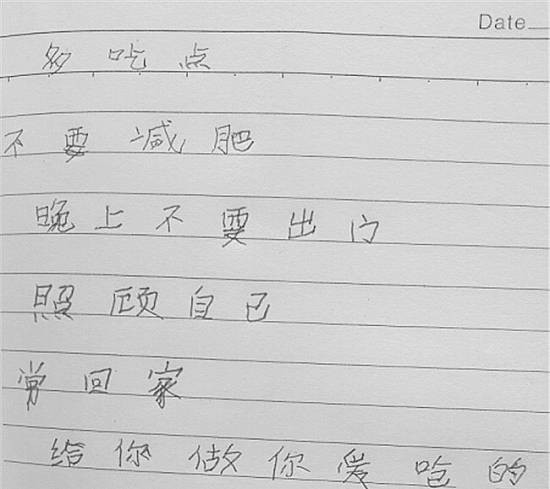 Date
多吃点
不要减肥
晚上不要出门
照顾自己
常回家
给你做你爱吃的